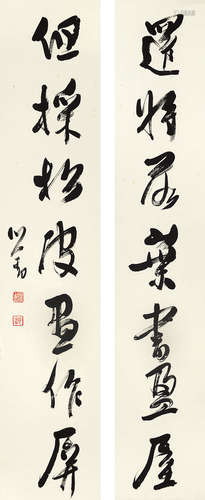 還將葉書盈屋
但採松皮畫作屏
心畬